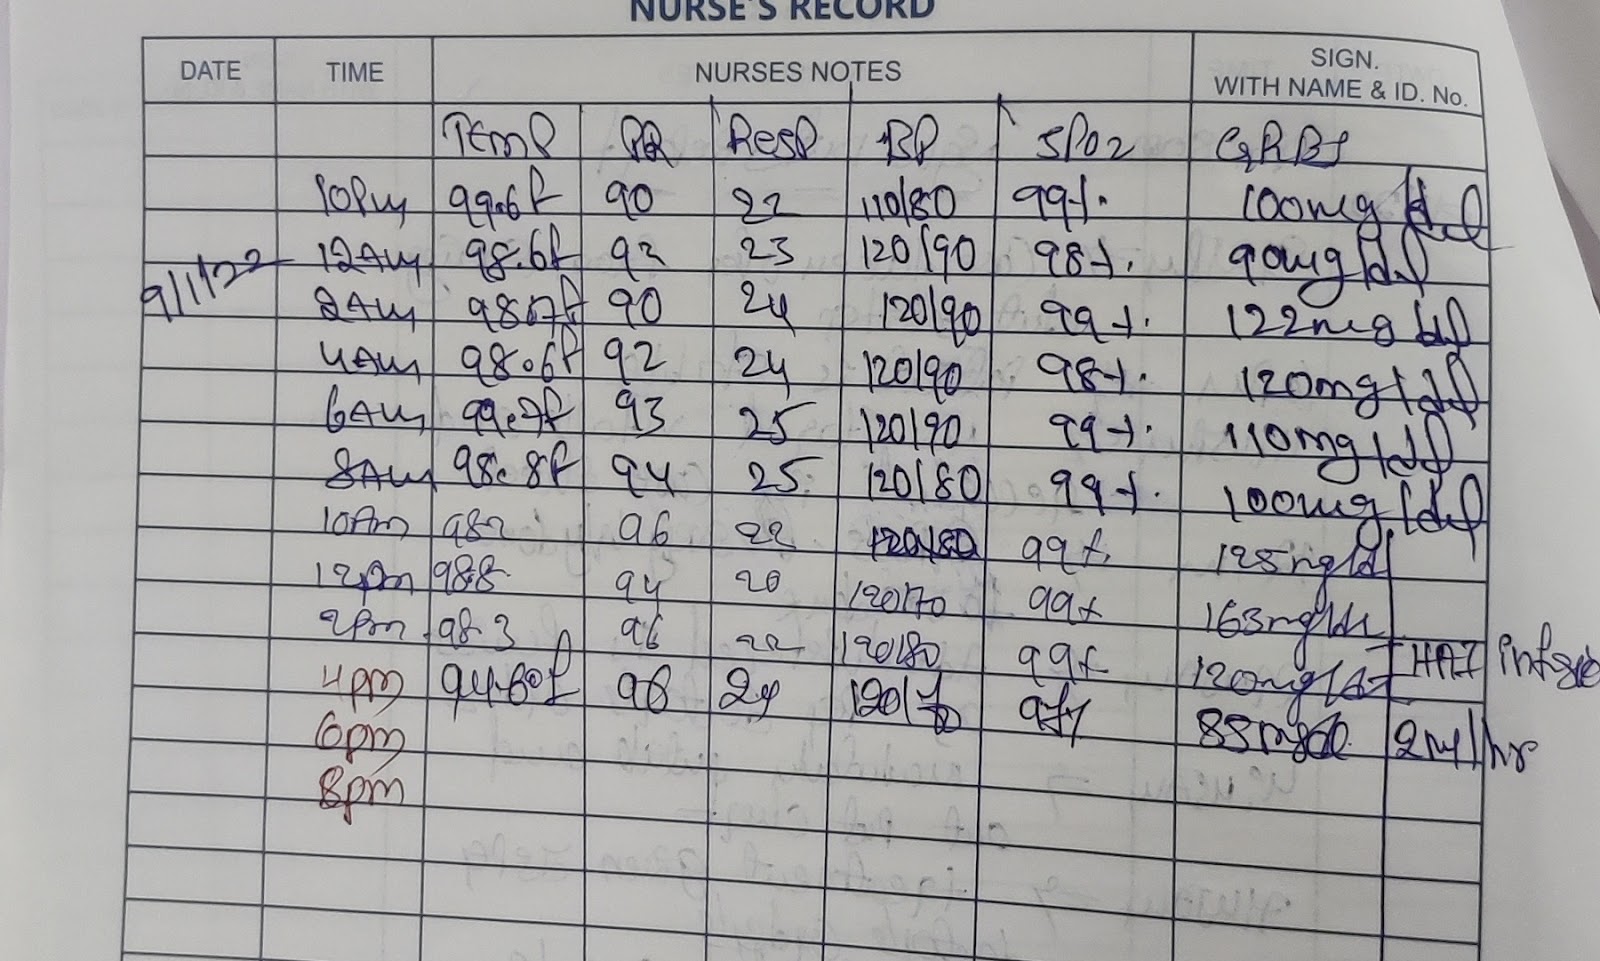 NURSE'S RECORD
DATE TIME NURSES NOTES SIGN.
WITH NAME & ID. No.
TEMP PR Resp BP SPO2 GRBS
10pm 99.6f 90 22 110/80 99% 100mg/dl
9/1/22 12Am 98.6f 92 23 120/90 98% 90mg/dl
2Am 98.7f 90 24 120/90 99% 122mg/dl
4Am 98.6f 92 24 120/90 98% 120mg/dl
6Am 99.7f 93 25 120/90 99% 110mg/dl
8Am 98.8f 94 25 120/80 99% 100mg/dl
10Am 96 22 120/80 99% 125mg/dl
12pm 98.8 94 20 120/70 99% 163mg/dl
2pm 98.3 96 22 120/80 99% 120mg/dl HAI
4pm 24 120/70 2ml/hr
6pm
8pm